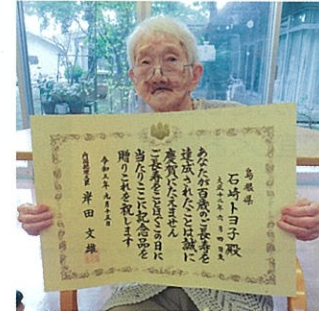 島根県
石崎トヨ子殿
大正十二年六月四日生
あなたが百歳のご長寿を
達成されたことは誠に
慶賀にたえません
ご長寿をことほぐこの日に
当たりここに記念品を
贈りこれを祝します
令和五年九月十五日
内閣総理大臣 岸田文雄